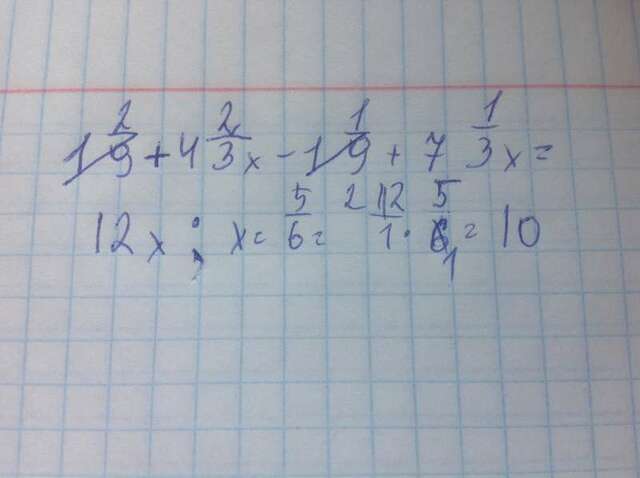 1 2/9 + 4 2/3 x - 1 1/9 + 7 1/3 x =
12x ; x = 5/6 = 2 12/1 · 5/6 1 = 10